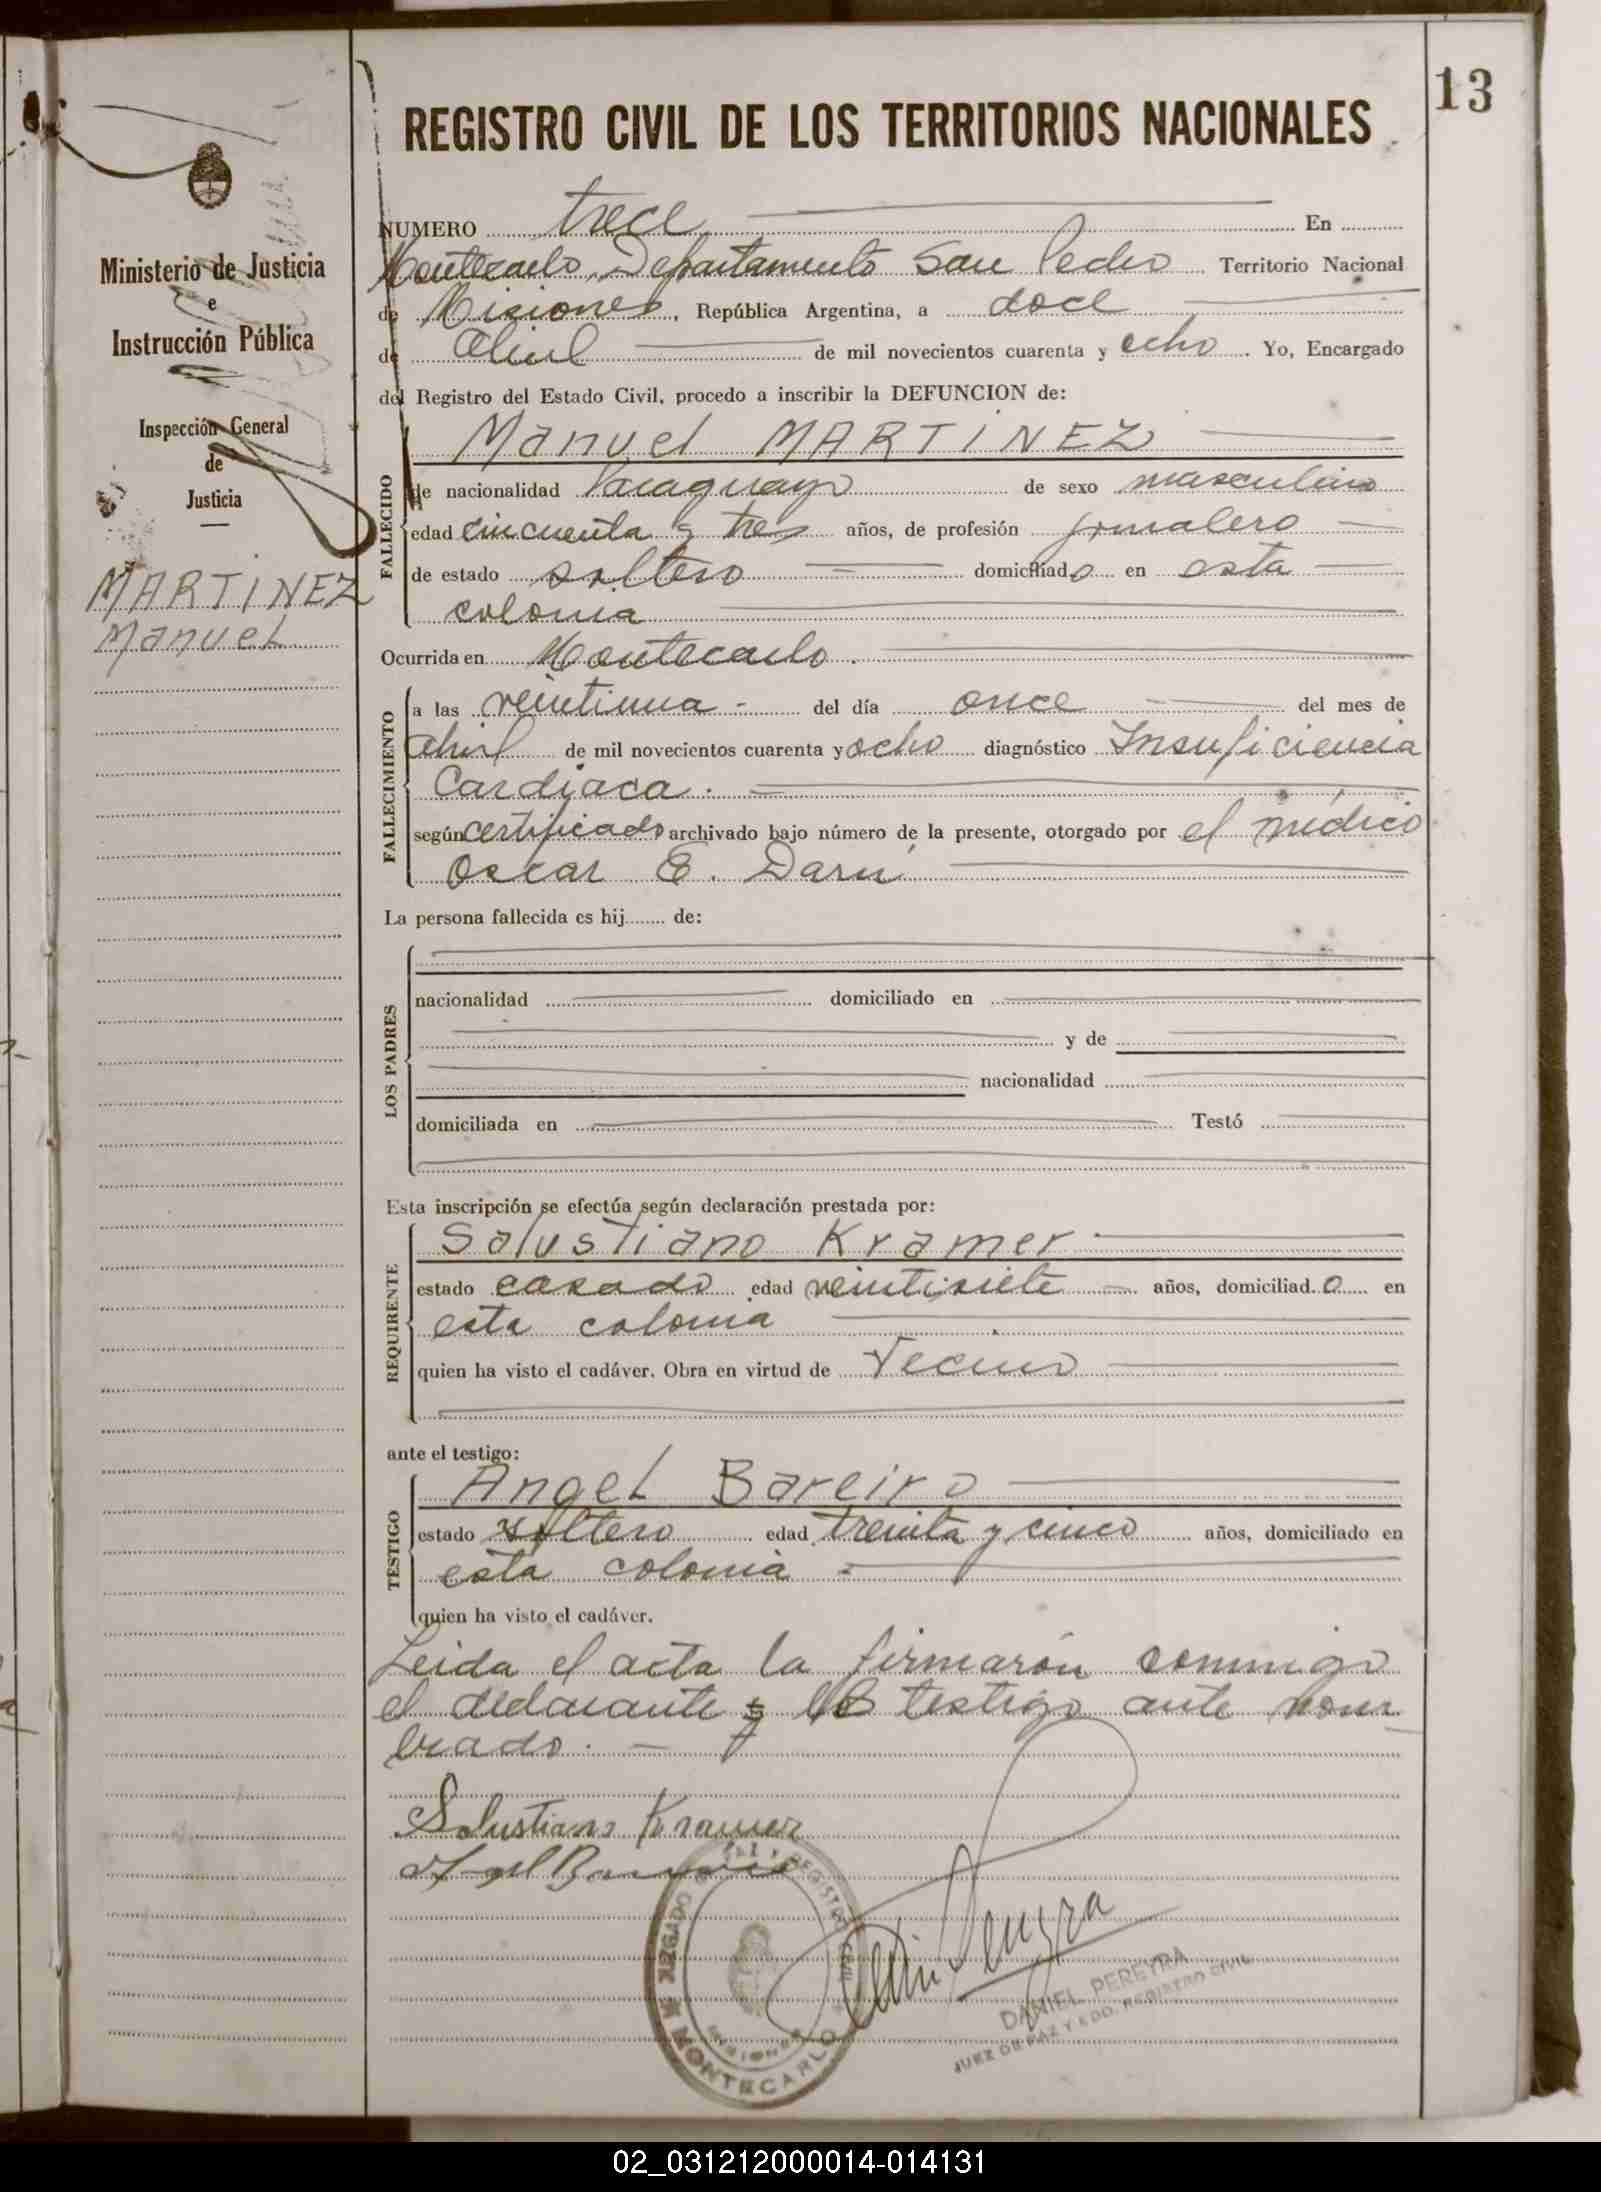 13
REGISTRO CIVIL DE LOS TERRITORIOS NACIONALES
Ministerio de Justicia
e
Instrucción Pública
Inspección General
de
Justicia
MARTINEZ
Manuel
NUMERO trece En
Montecarlo, Departamento San Pedro Territorio Nacional
de Misiones, República Argentina, a doce
de Abril de mil novecientos cuarenta y ocho. Yo, Encargado
del Registro del Estado Civil, procedo a inscribir la DEFUNCION de:
Manuel MARTINEZ
FALLECIDO
de nacionalidad Paraguayo de sexo masculino
edad cincuenta y tres años, de profesión jornalero
de estado soltero domiciliado en esta
colonia
Ocurrida en Montecarlo.
FALLECIMIENTO
a las veintiuna - del día once del mes de
Abril de mil novecientos cuarenta y ocho diagnóstico Insuficiencia
Cardiaca.
según certificado archivado bajo número de la presente, otorgado por el médico
Oscar E. Darú
La persona fallecida es hij........ de:
LOS PADRES
nacionalidad domiciliado en
y de
nacionalidad
domiciliada en Testó
Esta inscripción se efectúa según declaración prestada por:
REQUIRENTE
Salustiano Kramer
estado casado edad veintisiete años, domiciliad.o en
esta colonia
quien ha visto el cadáver. Obra en virtud de Vecino
ante el testigo:
TESTIGO
Angel Bareiro
estado soltero edad treinta y cinco años, domiciliado en
esta colonia
quien ha visto el cadáver.
Leida el acta la firmarón conmigo
el declarante y el testigo ante nom
brado. -
Salustiano Kramer
Angel Bareiro
JUZGADO DE PAZ Y REGISTRO CIVIL
MISIONES
MONTECARLO
Pereyra
DANIEL PEREYRA
JUEZ DE PAZ Y EDO. REGISTRO CIVIL
02_031212000014-014131